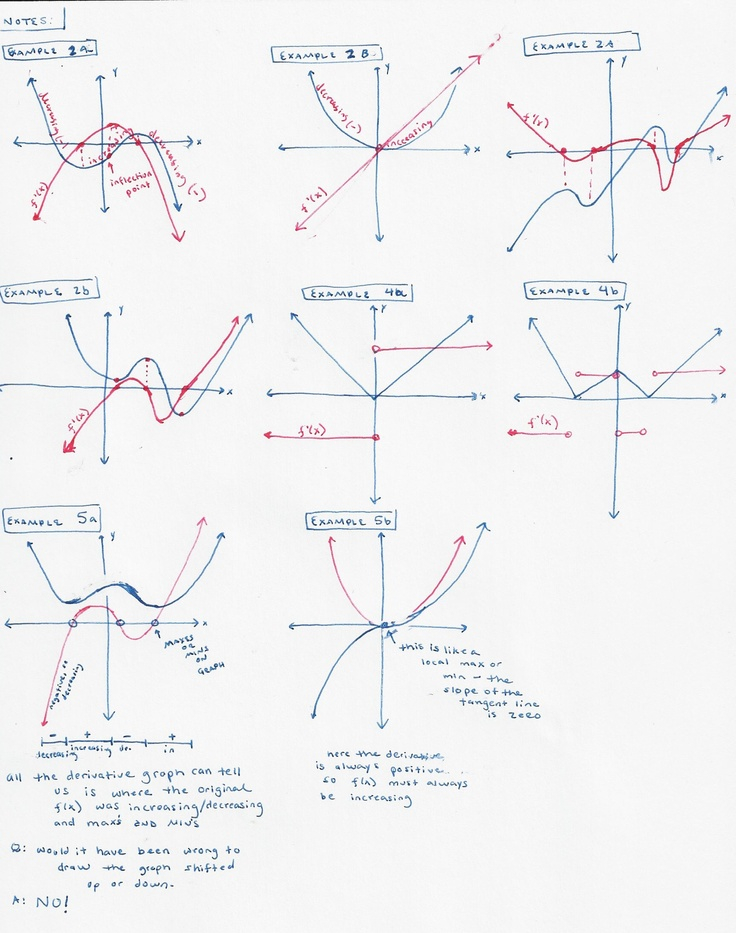 NOTES:
EXAMPLE 2a
y
x
decreasing (-)
increasing
decreasing (-)
inflection
point
f'(x)
EXAMPLE 2B
decreasing (-)
increasing
f'(x)
x
EXAMPLE 2A
y
f'(x)
x
EXAMPLE 2b
y
x
f'(x)
EXAMPLE 4a
y
x
f'(x)
EXAMPLE 4b
y
x
f'(x)
EXAMPLE 5a
y
x
MAXES
OR
MINS
ON
GRAPH
negatives so
decreasing
- + - +
decreasing increasing de. in
EXAMPLE 5b
this is like a
local max or
min - the
slope of the
tangent line
is zero
here the derivative
is always positive...
so f(x) must always
be increasing
all the derivative graph can tell
us is where the original
f(x) was increasing/decreasing
and max's AND MIN'S
Q: would it have been wrong to
draw the graph shifted
up or down.
A: NO!